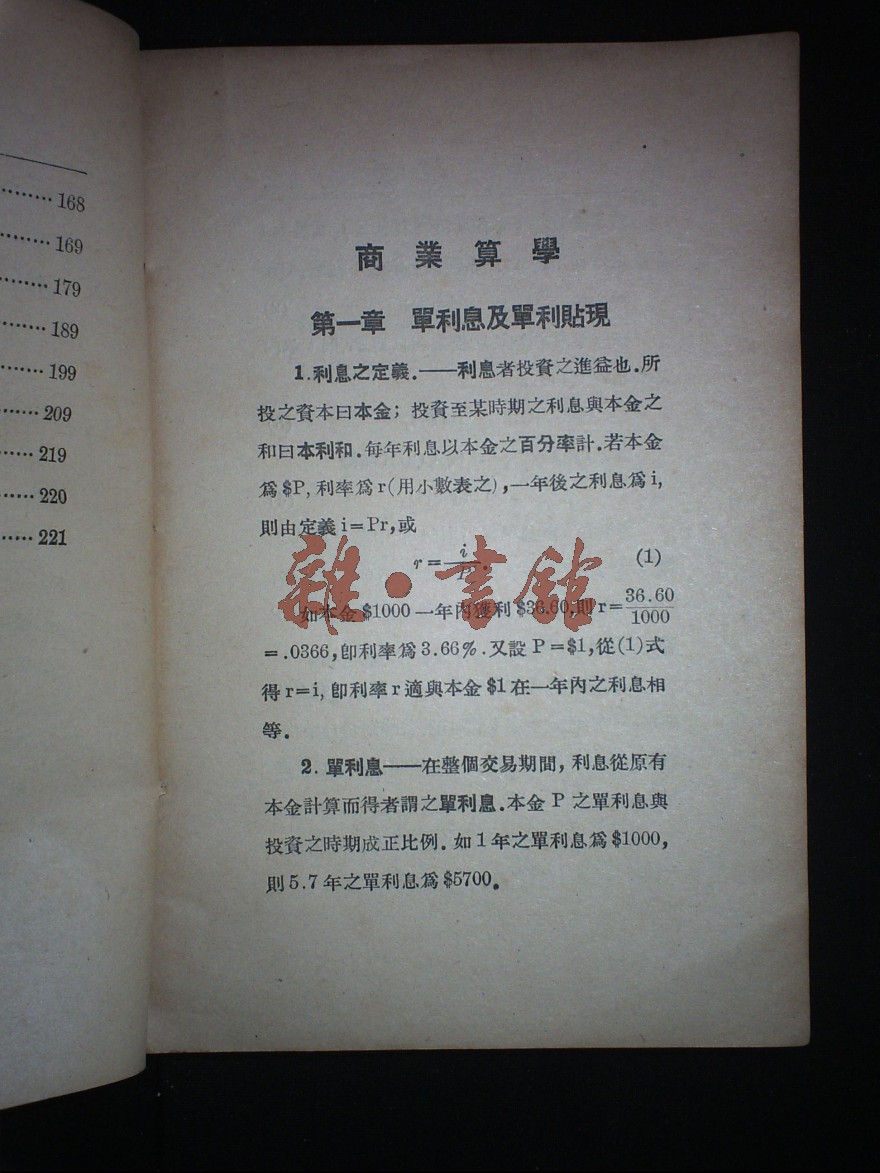 168
169
179
189
199
209
219
220
221
商業算學
第一章 單利息及單利貼現
1.利息之定義.——利息者投資之進益也.所
投之資本曰本金;投資至某時期之利息與本金之
和曰本利和.每年利息以本金之百分率計.若本金
爲$P,利率爲r(用小數表之),一年後之利息爲i,
則由定義i=Pr,或
r=i/P. (1)
如本金$1000一年內獲利$36.60,則r=36.60/1000
=.0366,卽利率爲3.66%.又設P=$1,從(1)式
得r=i,卽利率r適與本金$1在一年內之利息相
等.
2.單利息——在整個交易期間,利息從原有
本金計算而得者謂之單利息.本金P之單利息與
投資之時期成正比例.如1年之單利息爲$1000,
則5.7年之單利息爲$5700.
雜·書館